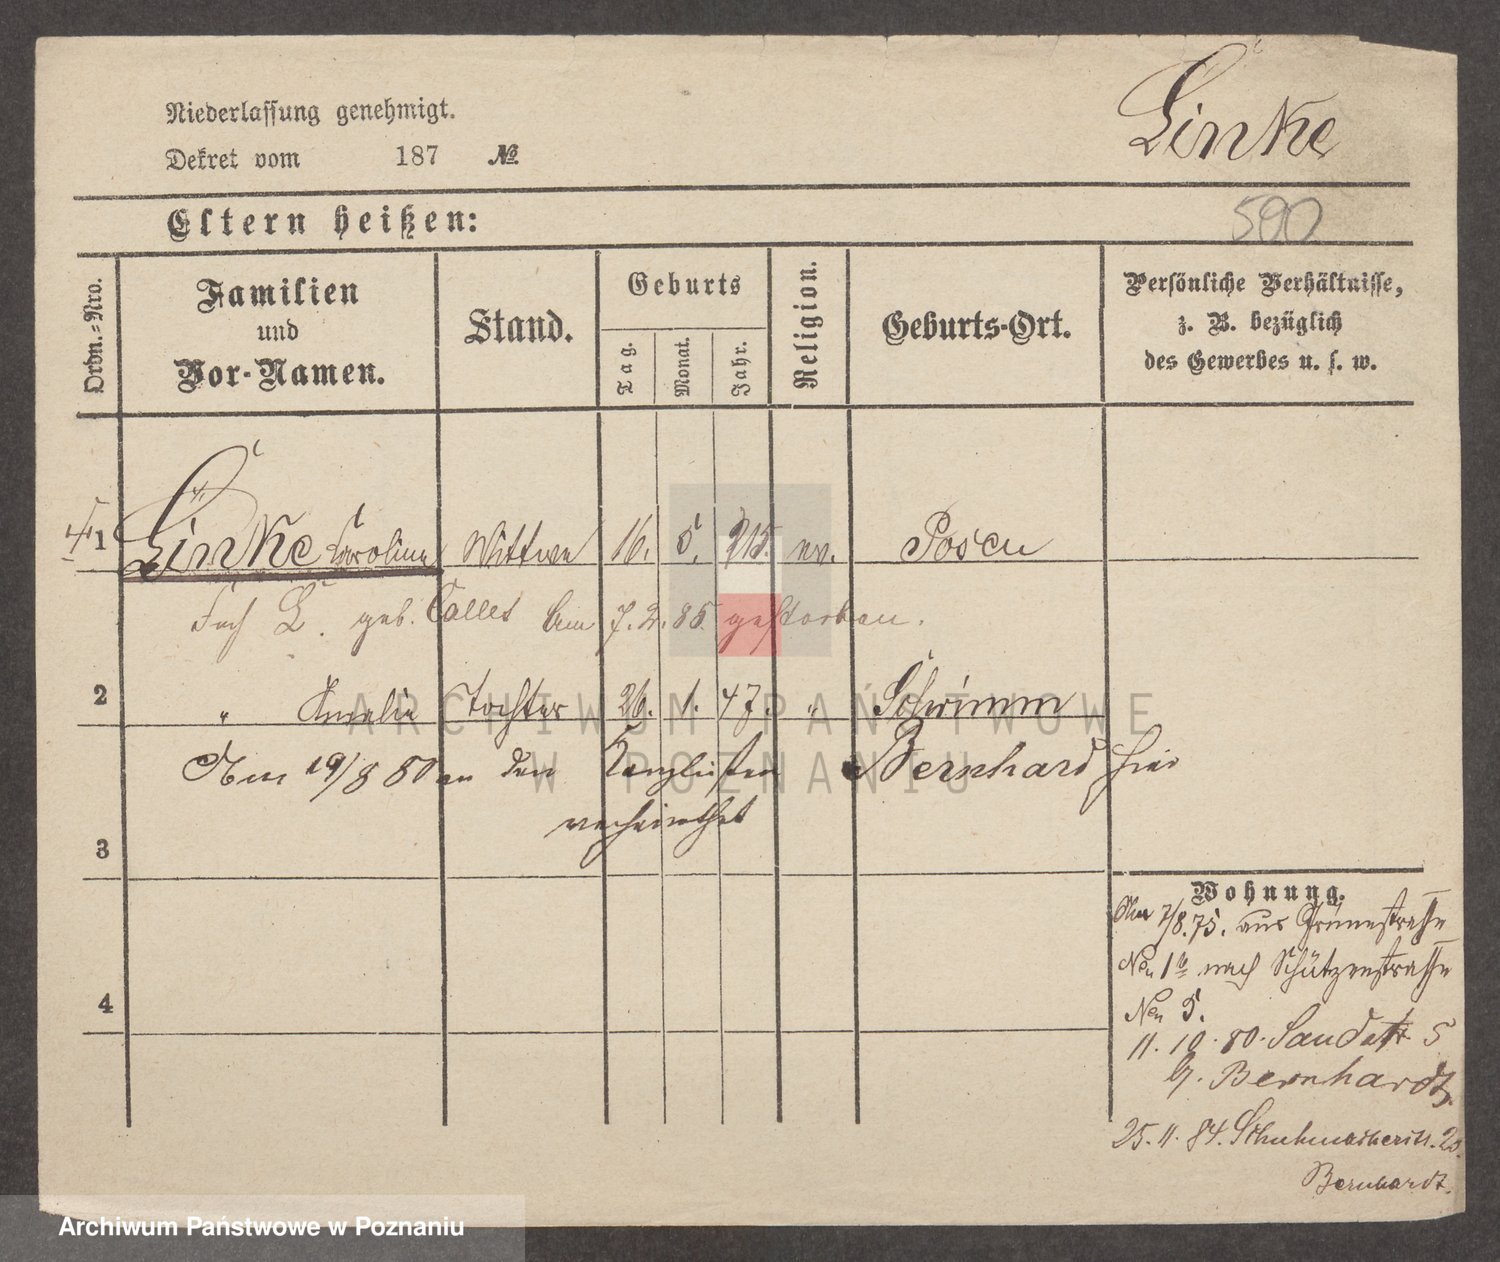 Linke
Niederlassung genehmigt.
Dekret vom 187 №
590
Eltern heißen:
Ordn.-Nro.
Familien
und
Vor-Namen.
Stand.
Geburts
Tag.
Monat.
Jahr.
Religion.
Geburts-Ort.
Persönliche Verhältnisse,
z. B. bezüglich
des Gewerbes u. s. w.
1 Linke Caroline Wittwe 16. 5. 915. ev. Posen
L. geb. Calles am 7.2.85 gestorben.
2 " Amalie Tochter 26. 1. 47. " Schrimm
Am 19/8 80 an den Kanzlisten Bernhard hier
verheirathet
3
4
Wohnung.
Am 7/8.75. aus Grünestraße
No 1b nach Schützenstraße
No 5.
11. 10. 80. 5
b/. Bernhardt.
25. 11. 84. Schuhmacherstr. 20.
Bernhardt.
ARCHIWUM PAŃSTWOWE
W POZNANIU
Archiwum Państwowe w Poznaniu